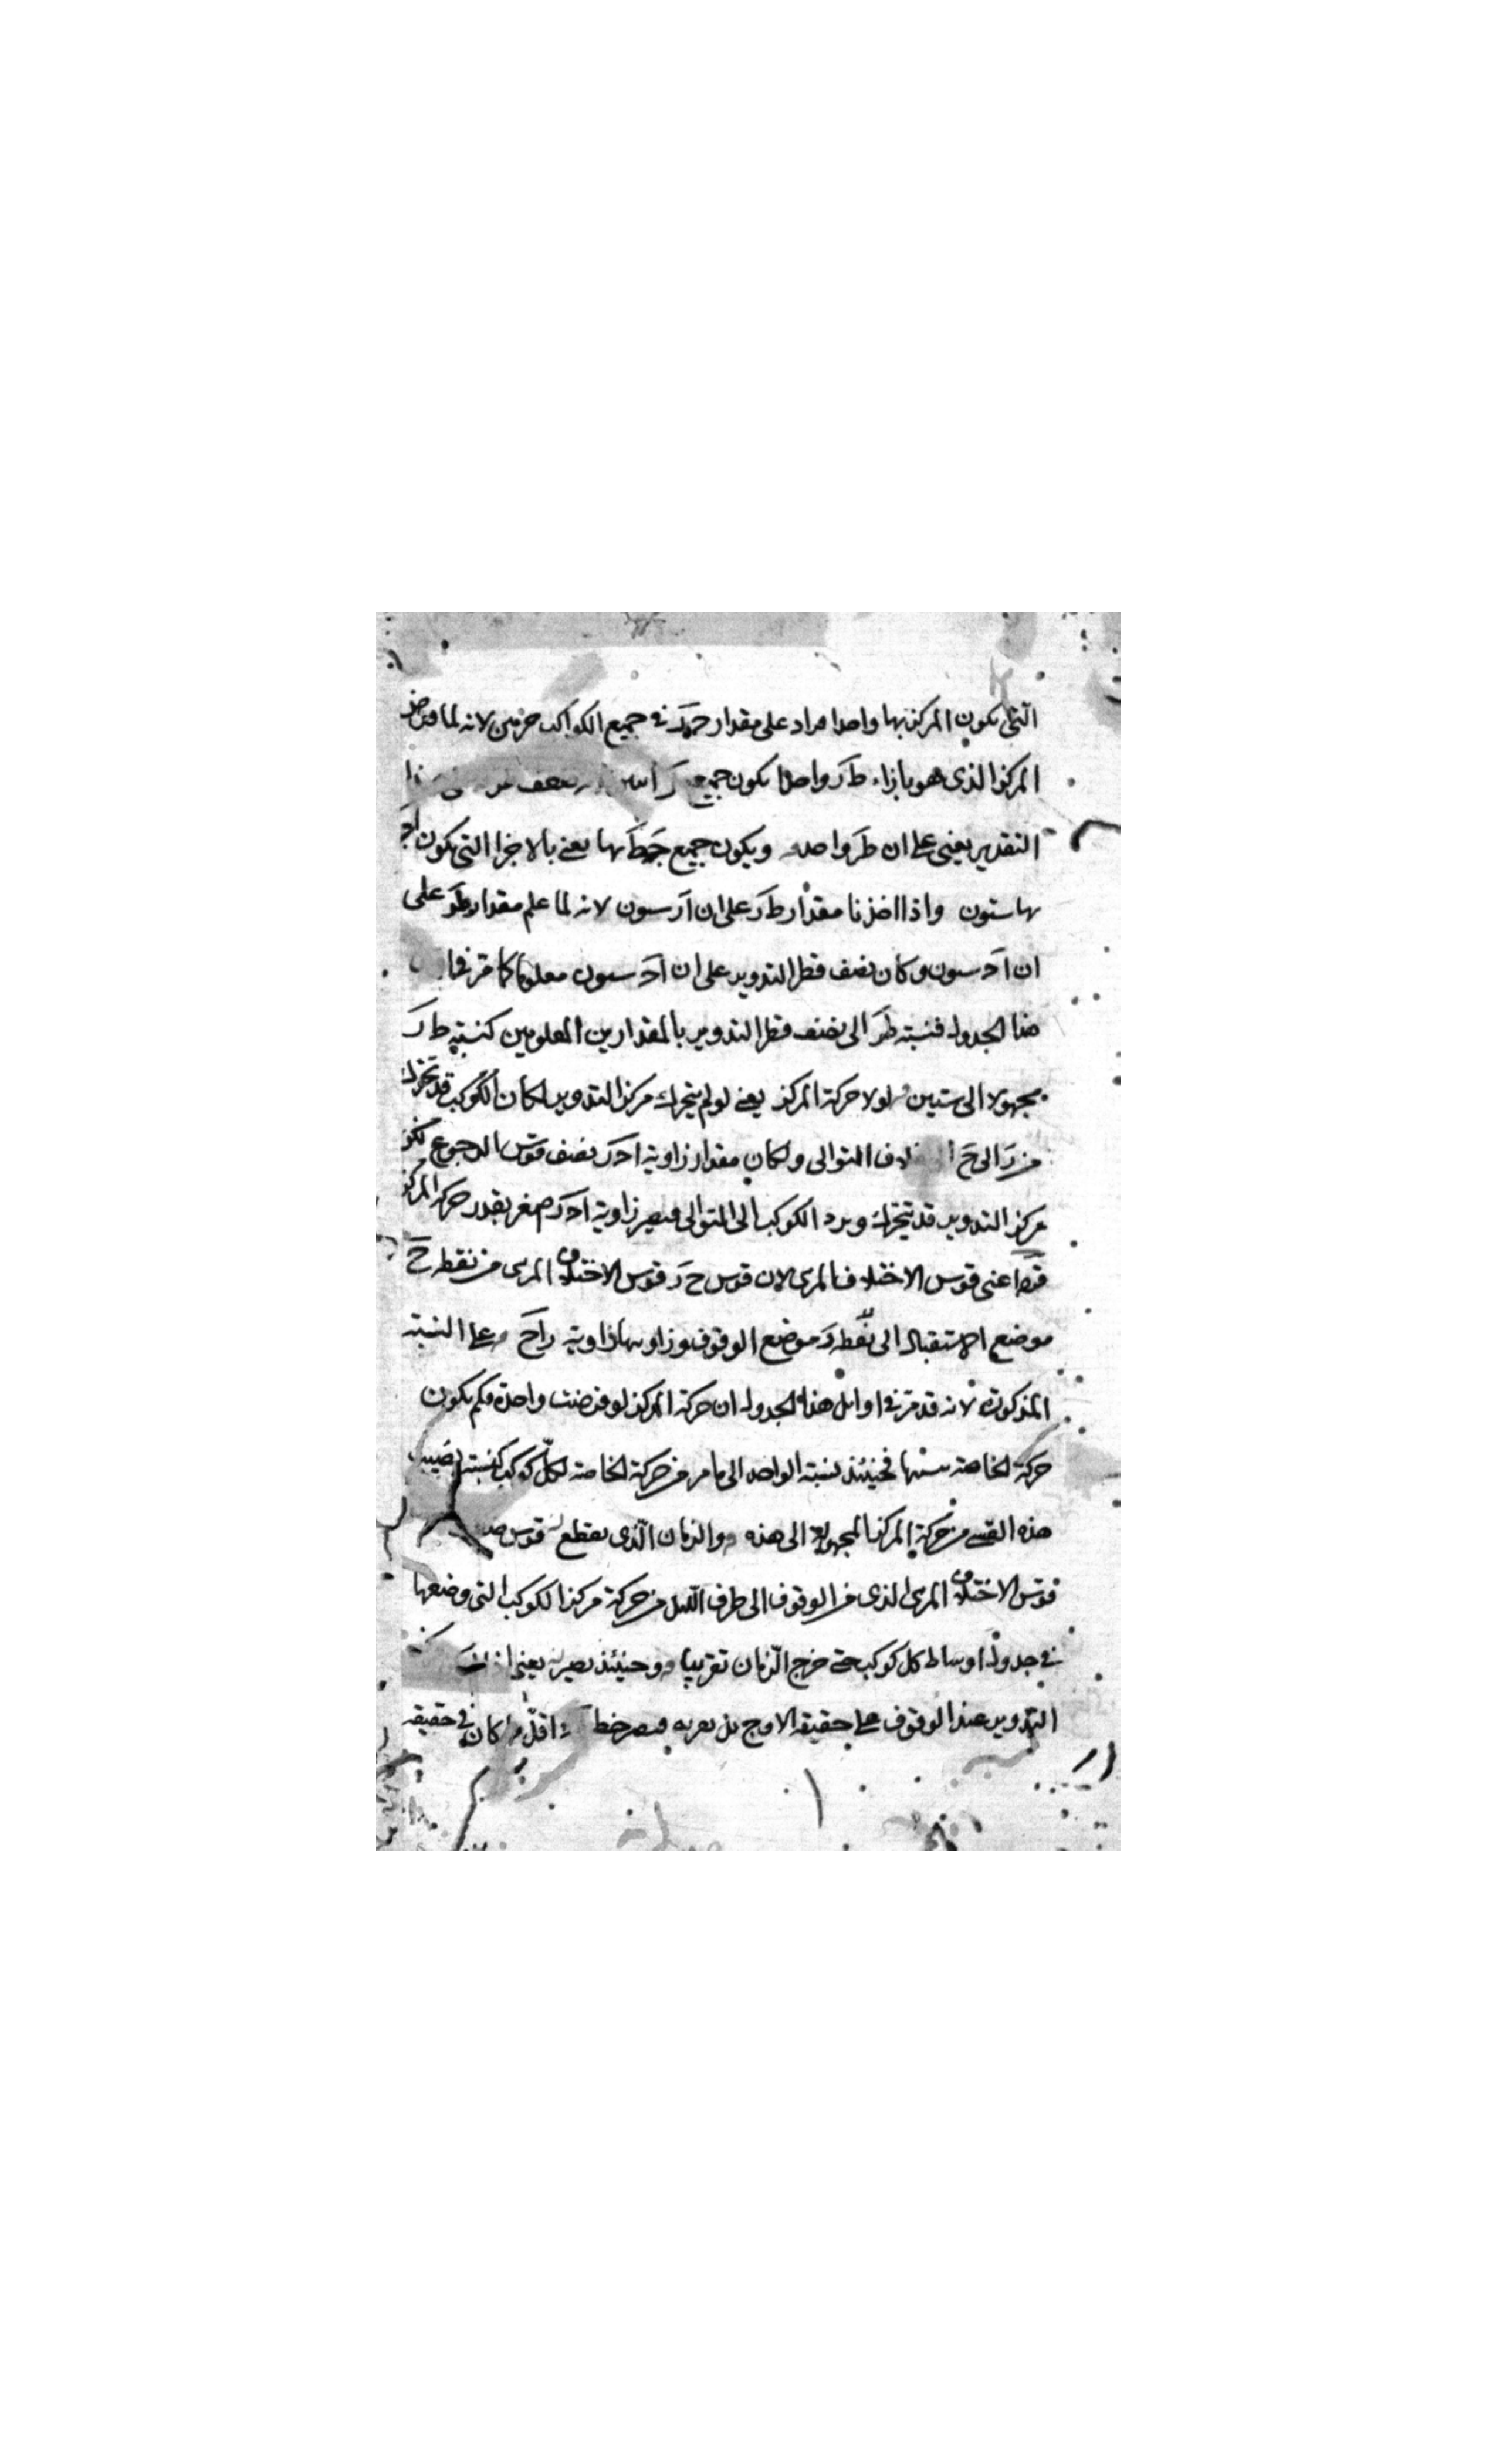 التى يكون المركز بها واحدا مراد على مقدار حرك فى جميع الكواكب جزئين لانه لما فرض
المركز الذى هو بازاء ط ر واحدا يكون جميع
التقدير يعنى على ان ط ر واحد ويكون جميع ج ط بها يعنى بالاجزا التى يكون
بها ستون واذا اخذنا مقدار ط ر على ان ا ر ستون لانه لما علم مقدار ط ر على
ان ا د ستون وكان نصف قطر التدوير على ان ا د ستون معلوما كما مر فى
هذا الجدول فنسبة ط ر الى نصف قطر التدوير بالمقدارين المعلومين كنسبة ط ر
مجهولا الى ستين لولا حركة المركز يعنى لو لم يتحرك مركز التدوير لكان الكوكب قد تحرك
من ر الى ح خلاف التوالى ولكان مقدار زاوية ا د ر نصف قوس الرجوع لكن
مركز التدوير قد يتحرك ويرد الكوكب الى التوالى فيصير زاوية ا د ر اصغر بقدر حركة المركز
اعنى قوس الاختلاف المرى لان قوس ح ر قوس الاختلاف المرى من نقطة ح
موضع الاستقبال الى نقطة ر موضع الوقوف وزاويتها زاوية ر ا ح وعلى النسبة
المذكورة لانه قد مر فى اوائل هذا الجدول ان حركة المركز لو فرضت واحدة فكم يكون
حركة الخاصة منها فحينئذ نسبة الواحد الى ما مر من حركة الخاصة لكل كوكب كنسبة نصيب
هذه القسى من حركة المركز المجهولة الى هذه والزمان الذى يقطع قوس
قوس الاختلاف المرى الذى من الوقوف الى طرف الليل من حركة مركز الكوكب التى وضعها
فى جدول اوساط كل كوكب حتى خرج الزمان تقريبا وحينئذ يصير يعنى
التدوير عند الوقوف على حقيقة الاوج بل بقربه فيصير خط اقل مما كان فى حقيقة